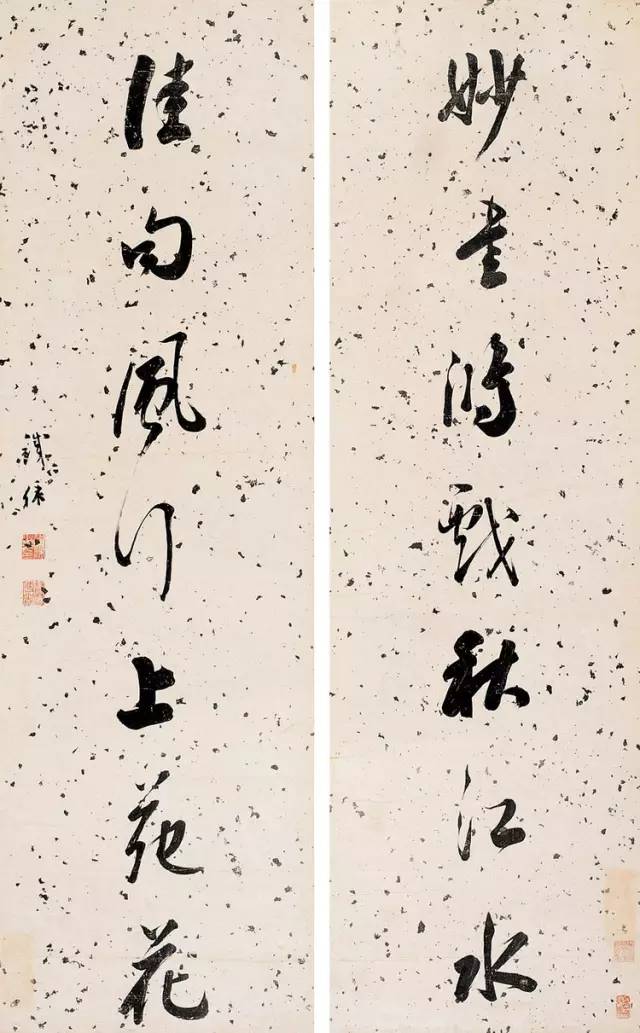 妙書鴻戲秋江水
佳句風行上苑花
鐵保